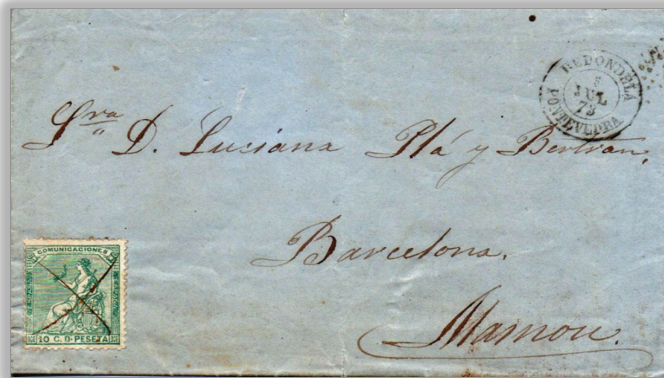 REDONDELA
5
JUL
73
PONTEVEDRA
Sra D. Luciana Plá y Bertran,
Barcelona.
COMUNICACIONES
10 C. D. PESETA